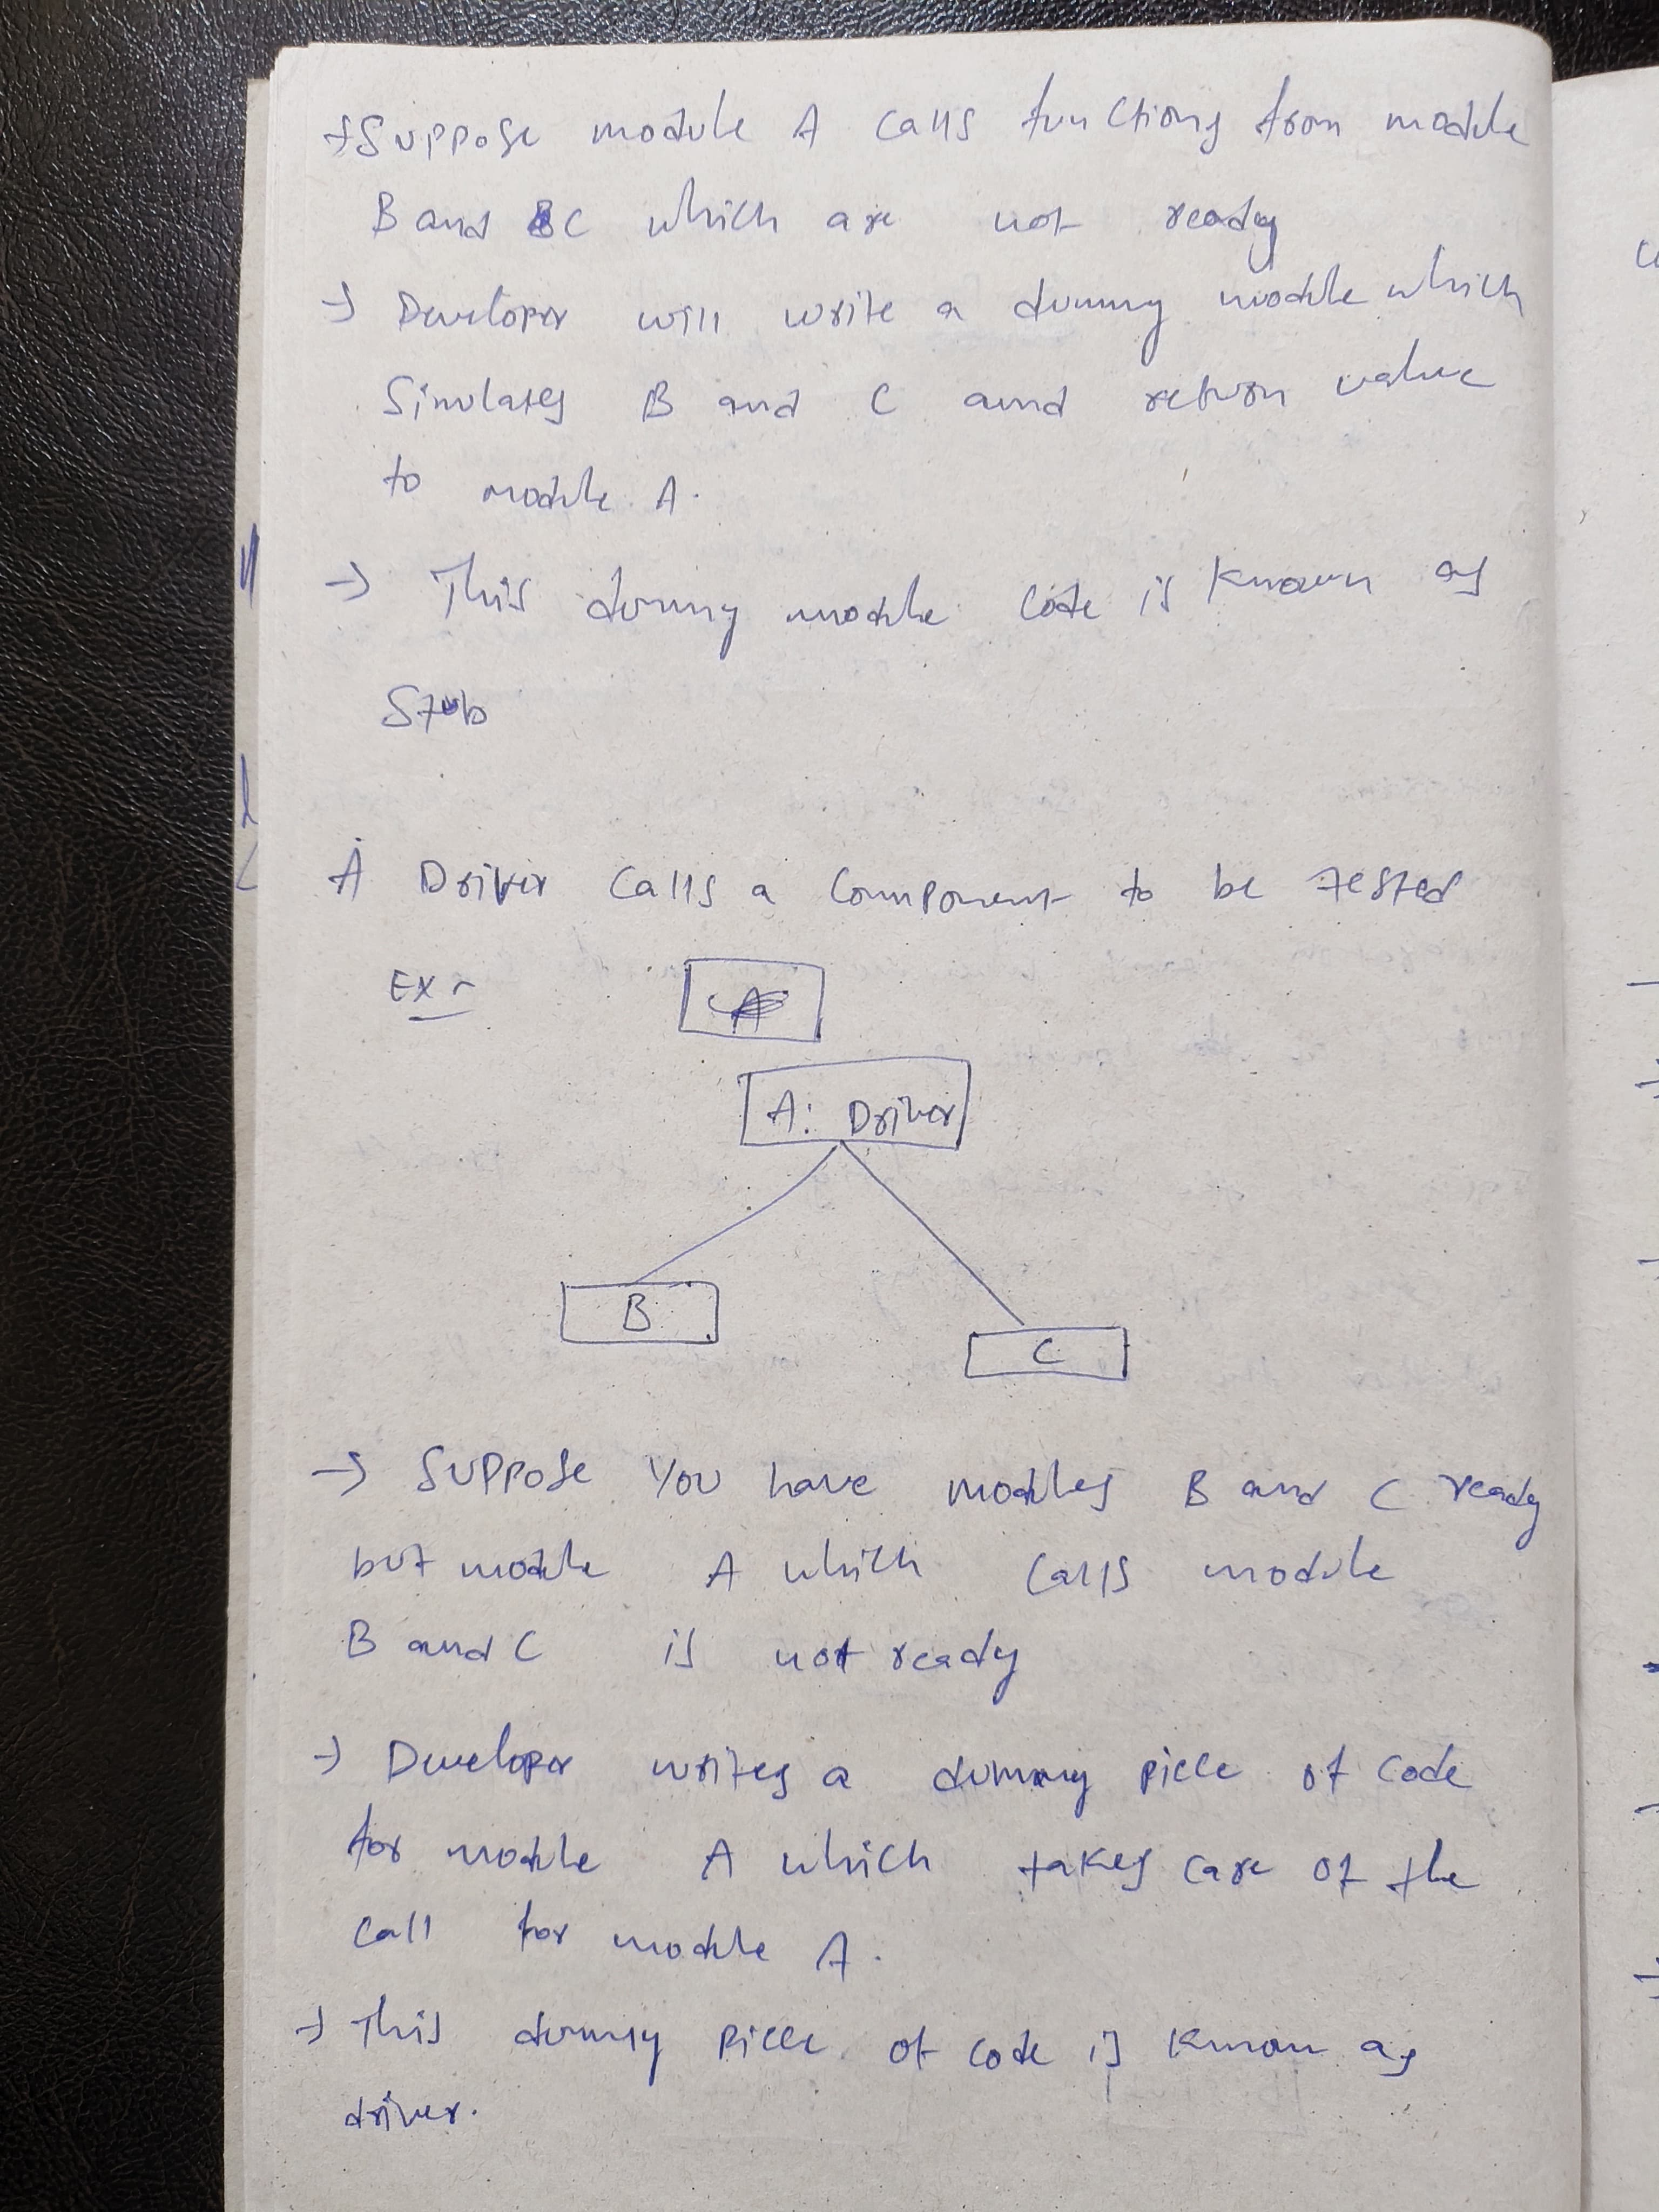 → Suppose module A calls functions from module
B and C which are not ready
→ Developer will write a dummy module which
Simulates B and C and return value
to module A.
→ This dummy module code is known as
Stub
A Driver calls a component to be tested
Ex -
A
A: Driver
B
C
→ Suppose you have modules B and C ready
but module A which calls module
B and C is not ready
→ Developer writes a dummy piece of code
for module A which takes care of the
call for module A.
→ This dummy piece of code is known as
driver.